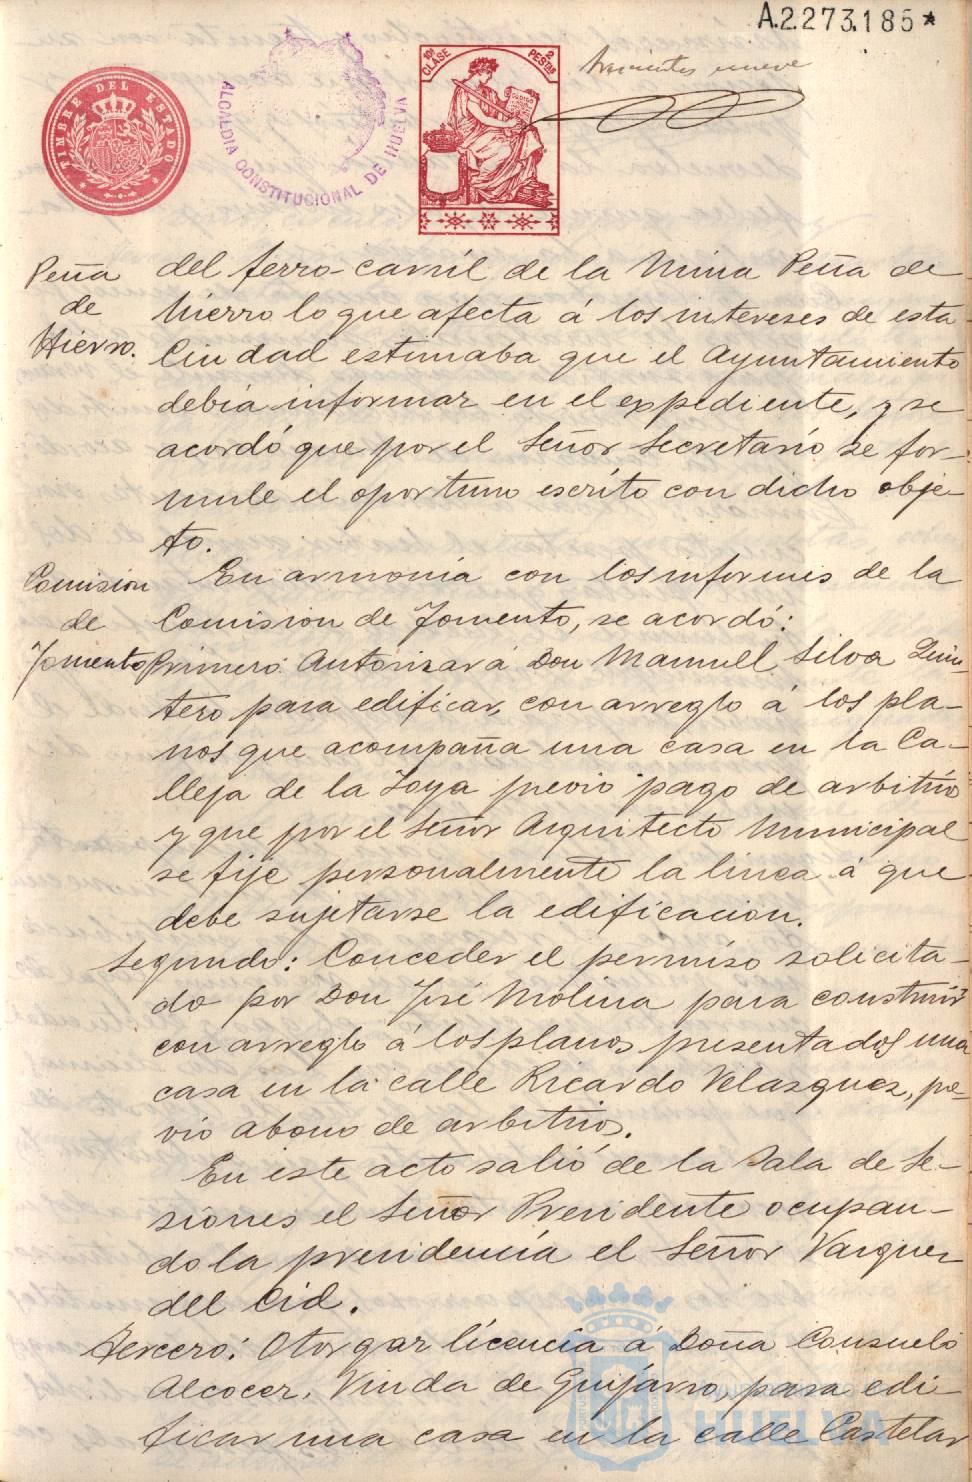 A.2.273.185*
10ª CLASE
2 PESTAS
TIMBRE DEL ESTADO
ALCALDIA CONSTITUCIONAL DE HUELVA
trescientos nueve
Peña
de
Hierro.
del ferro-carril de la Mina Peña de
Hierro lo que afecta á los intereses de esta
Ciudad estimaba que el Ayuntamiento
debia informar en el expediente, y se
acordó que por el Señor Secretario se for-
mule el oportuno escrito con dicho obje-
to.
Comision
de
Fomento
En armonia con los informes de la
Comision de Fomento, se acordó:
Primero: Autorizar á Don Manuel Silva Quin-
tero para edificar, con arreglo á los pla-
nos que acompaña una casa en la Ca-
lleja de la Joya previo pago de arbitrio
y que por el Señor Arquitecto Municipal
se fije personalmente la linea á que
debe sujetarse la edificacion.
Segundo: Conceder el permiso solicita-
do por Don José Molina para construir
con arreglo á los planos presentados una
casa en la calle Ricardo Velazquez, pre-
vio abono de arbitrios.
En este acto salió de la Sala de Se-
siones el Señor Presidente ocupan-
do la presidencia el Señor Vazquez
del Cid.
Tercero: Otorgar licencia á Doña Consuelo
Alcocer, Viuda de Guijarro, para edi-
ficar una casa en la calle Castelar
HUELVA